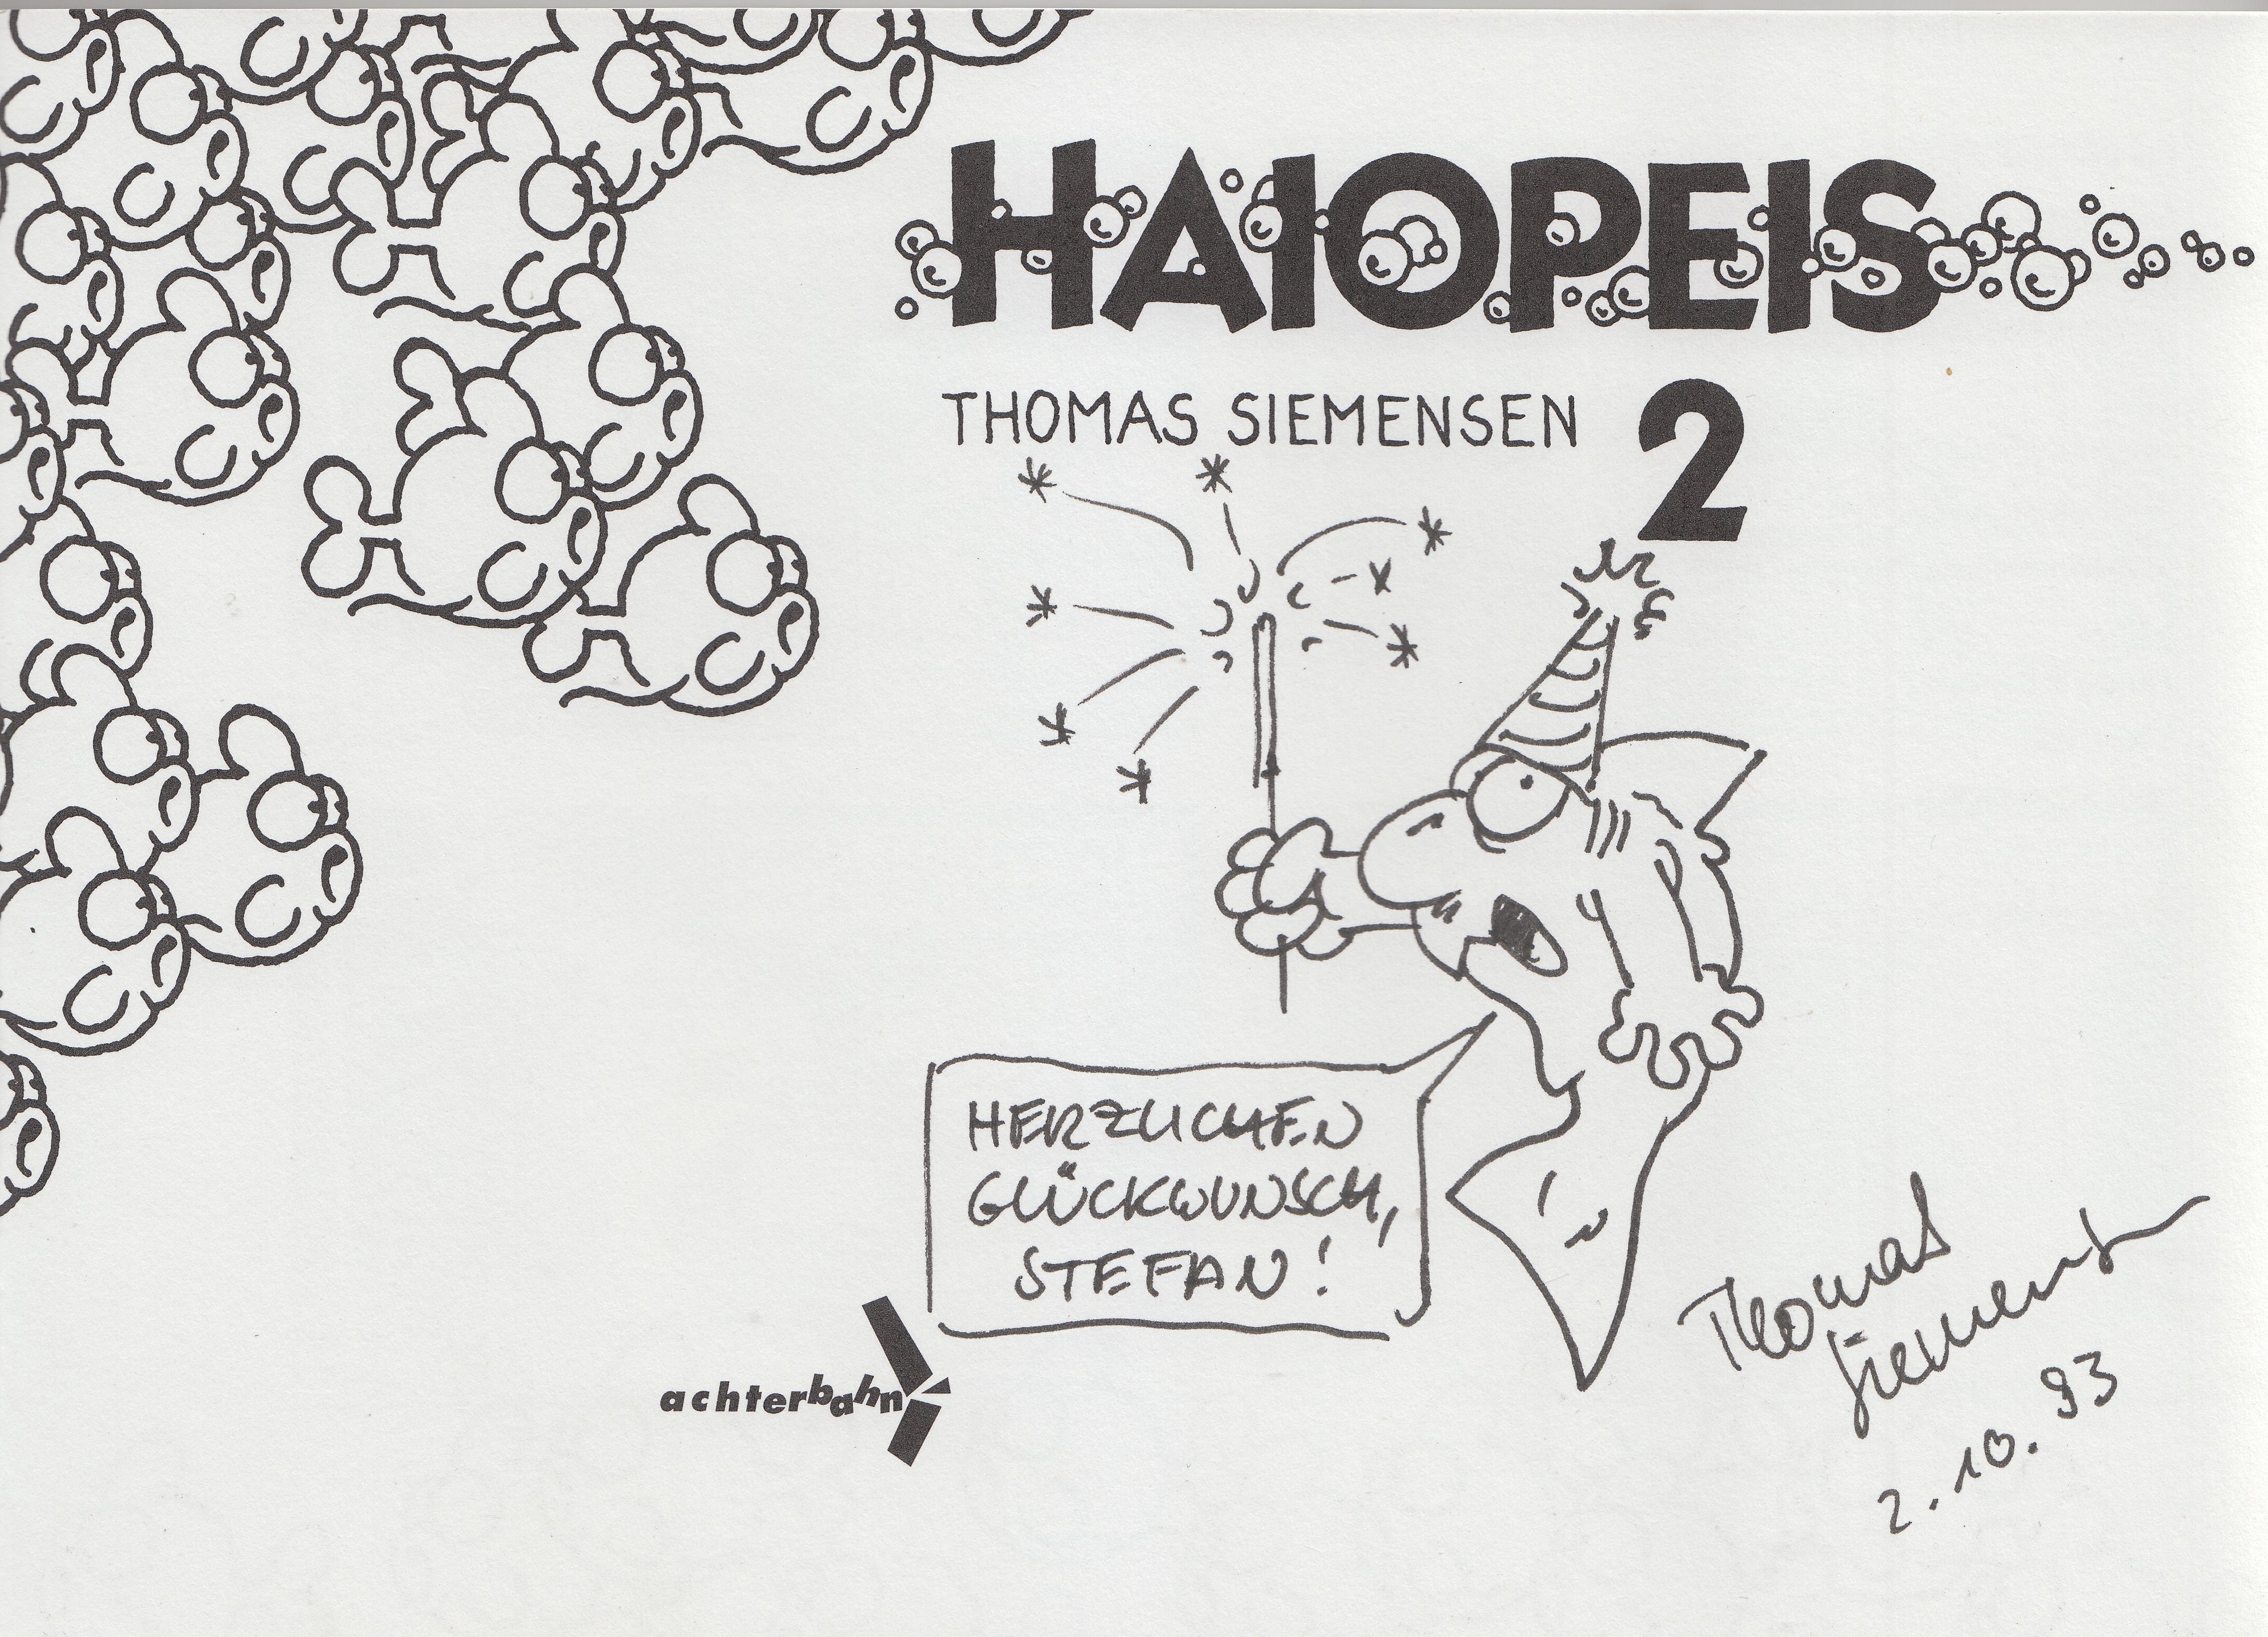 HAIOPEIS
THOMAS SIEMENSEN
2
HERZLICHEN
GLÜCKWUNSCH,
STEFAN!
achterbahn
Thomas
Siemensen
2.10.93